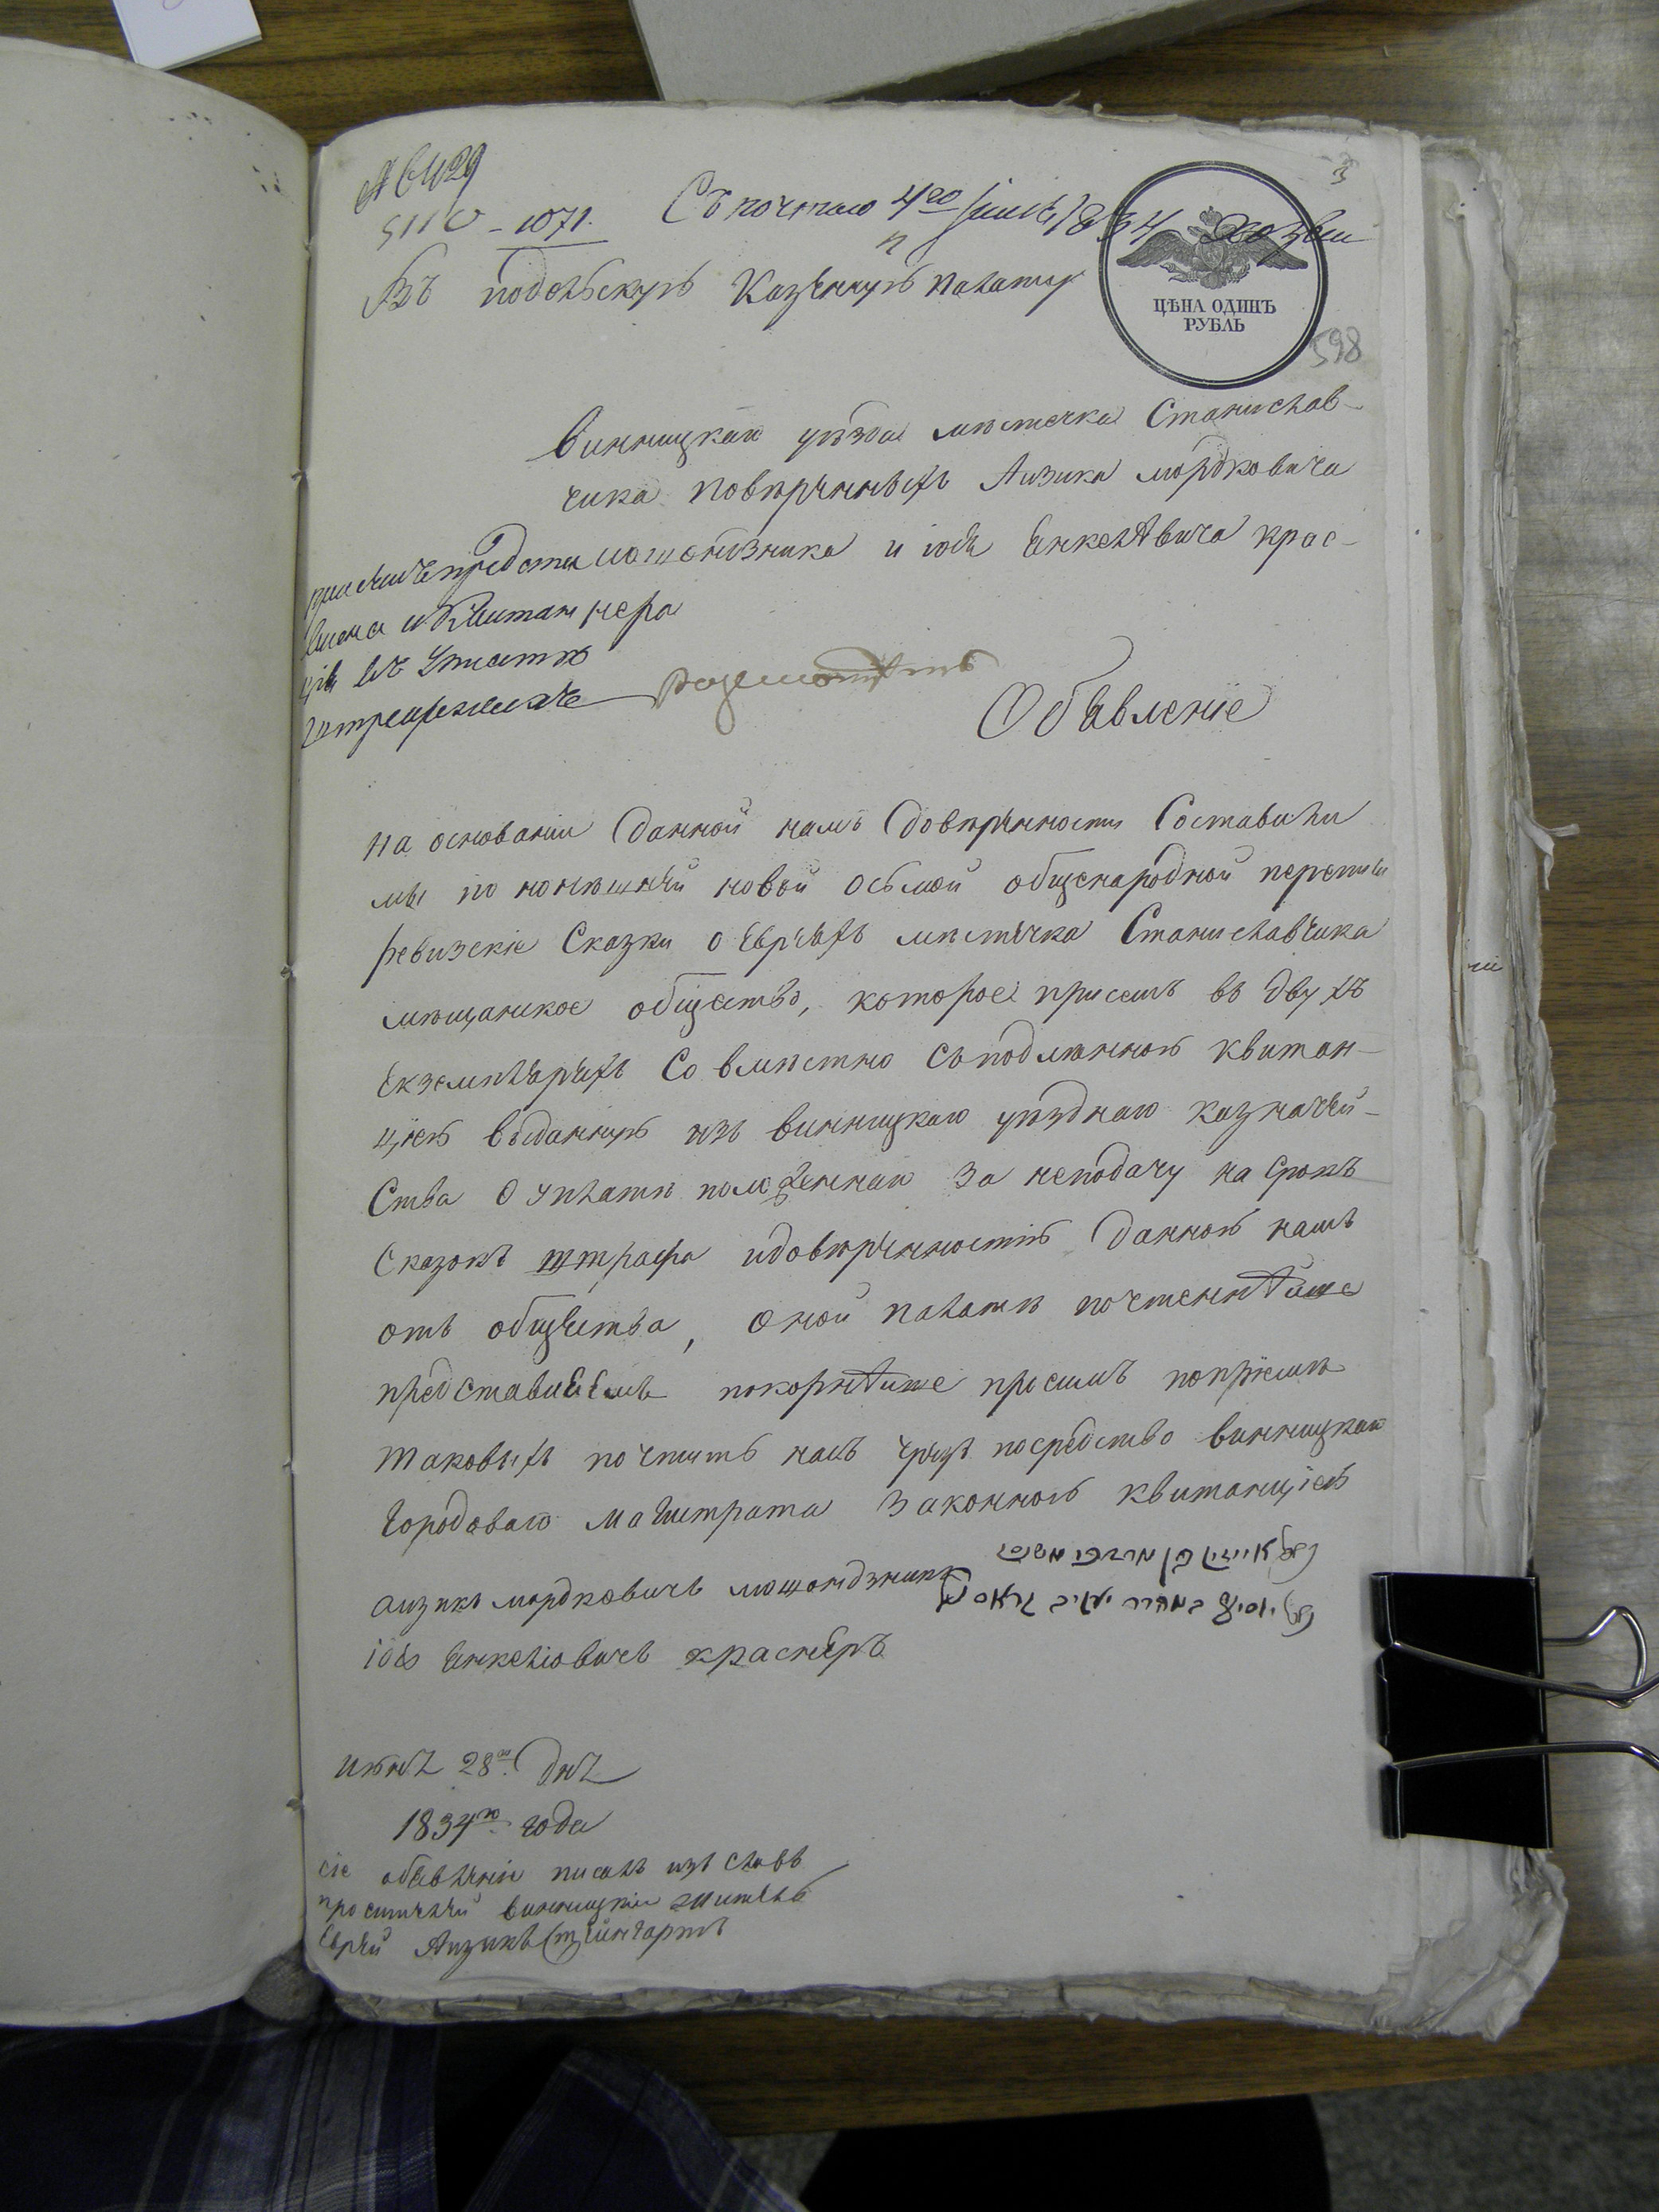 1071.
Съ почтою 4го 1834
Въ подольскую Казенную палату
ЦѢНА ОДИНЪ
РУБЛЬ
598
Винницкаго уѣзда мѣстечка Станислав-
чика повѣренныхъ Аизика мордковича
и юся Енкелѣвича крас-
нера
Объявленіе
на основаніи данной намъ довѣренности Составили
мы по нонѣшней новой осьмой общенародной переписи
ревизскіе Сказки о евреяхъ мѣстечка Станиславчика
мѣщанское общество, которое при семъ въ двухъ
екземплярехъ Совмѣстно съ подлѣнною квитан-
цією выданную изъ винницкаго уѣзднаго казначей-
Ства О уплатѣ положеннаго За неподачу на Срокъ
Сказокъ штрафа и довѣренностію данною намъ
отъ общества, оной палатѣ почтеннѣйше
покорнѣйше просимъ по пріемѣ
таковыхъ почтить насъ чрезъ посредство винницкаго
городоваго магистрата Законною квитанцією
аизикъ мордковичъ
юсь Енкелiовичъ краснеръ
июня 28го дня
1834го года
сіе объявленіе писалъ изъ словъ
просителей винницкій житель
Еврей Аизикъ Штейнгартъ